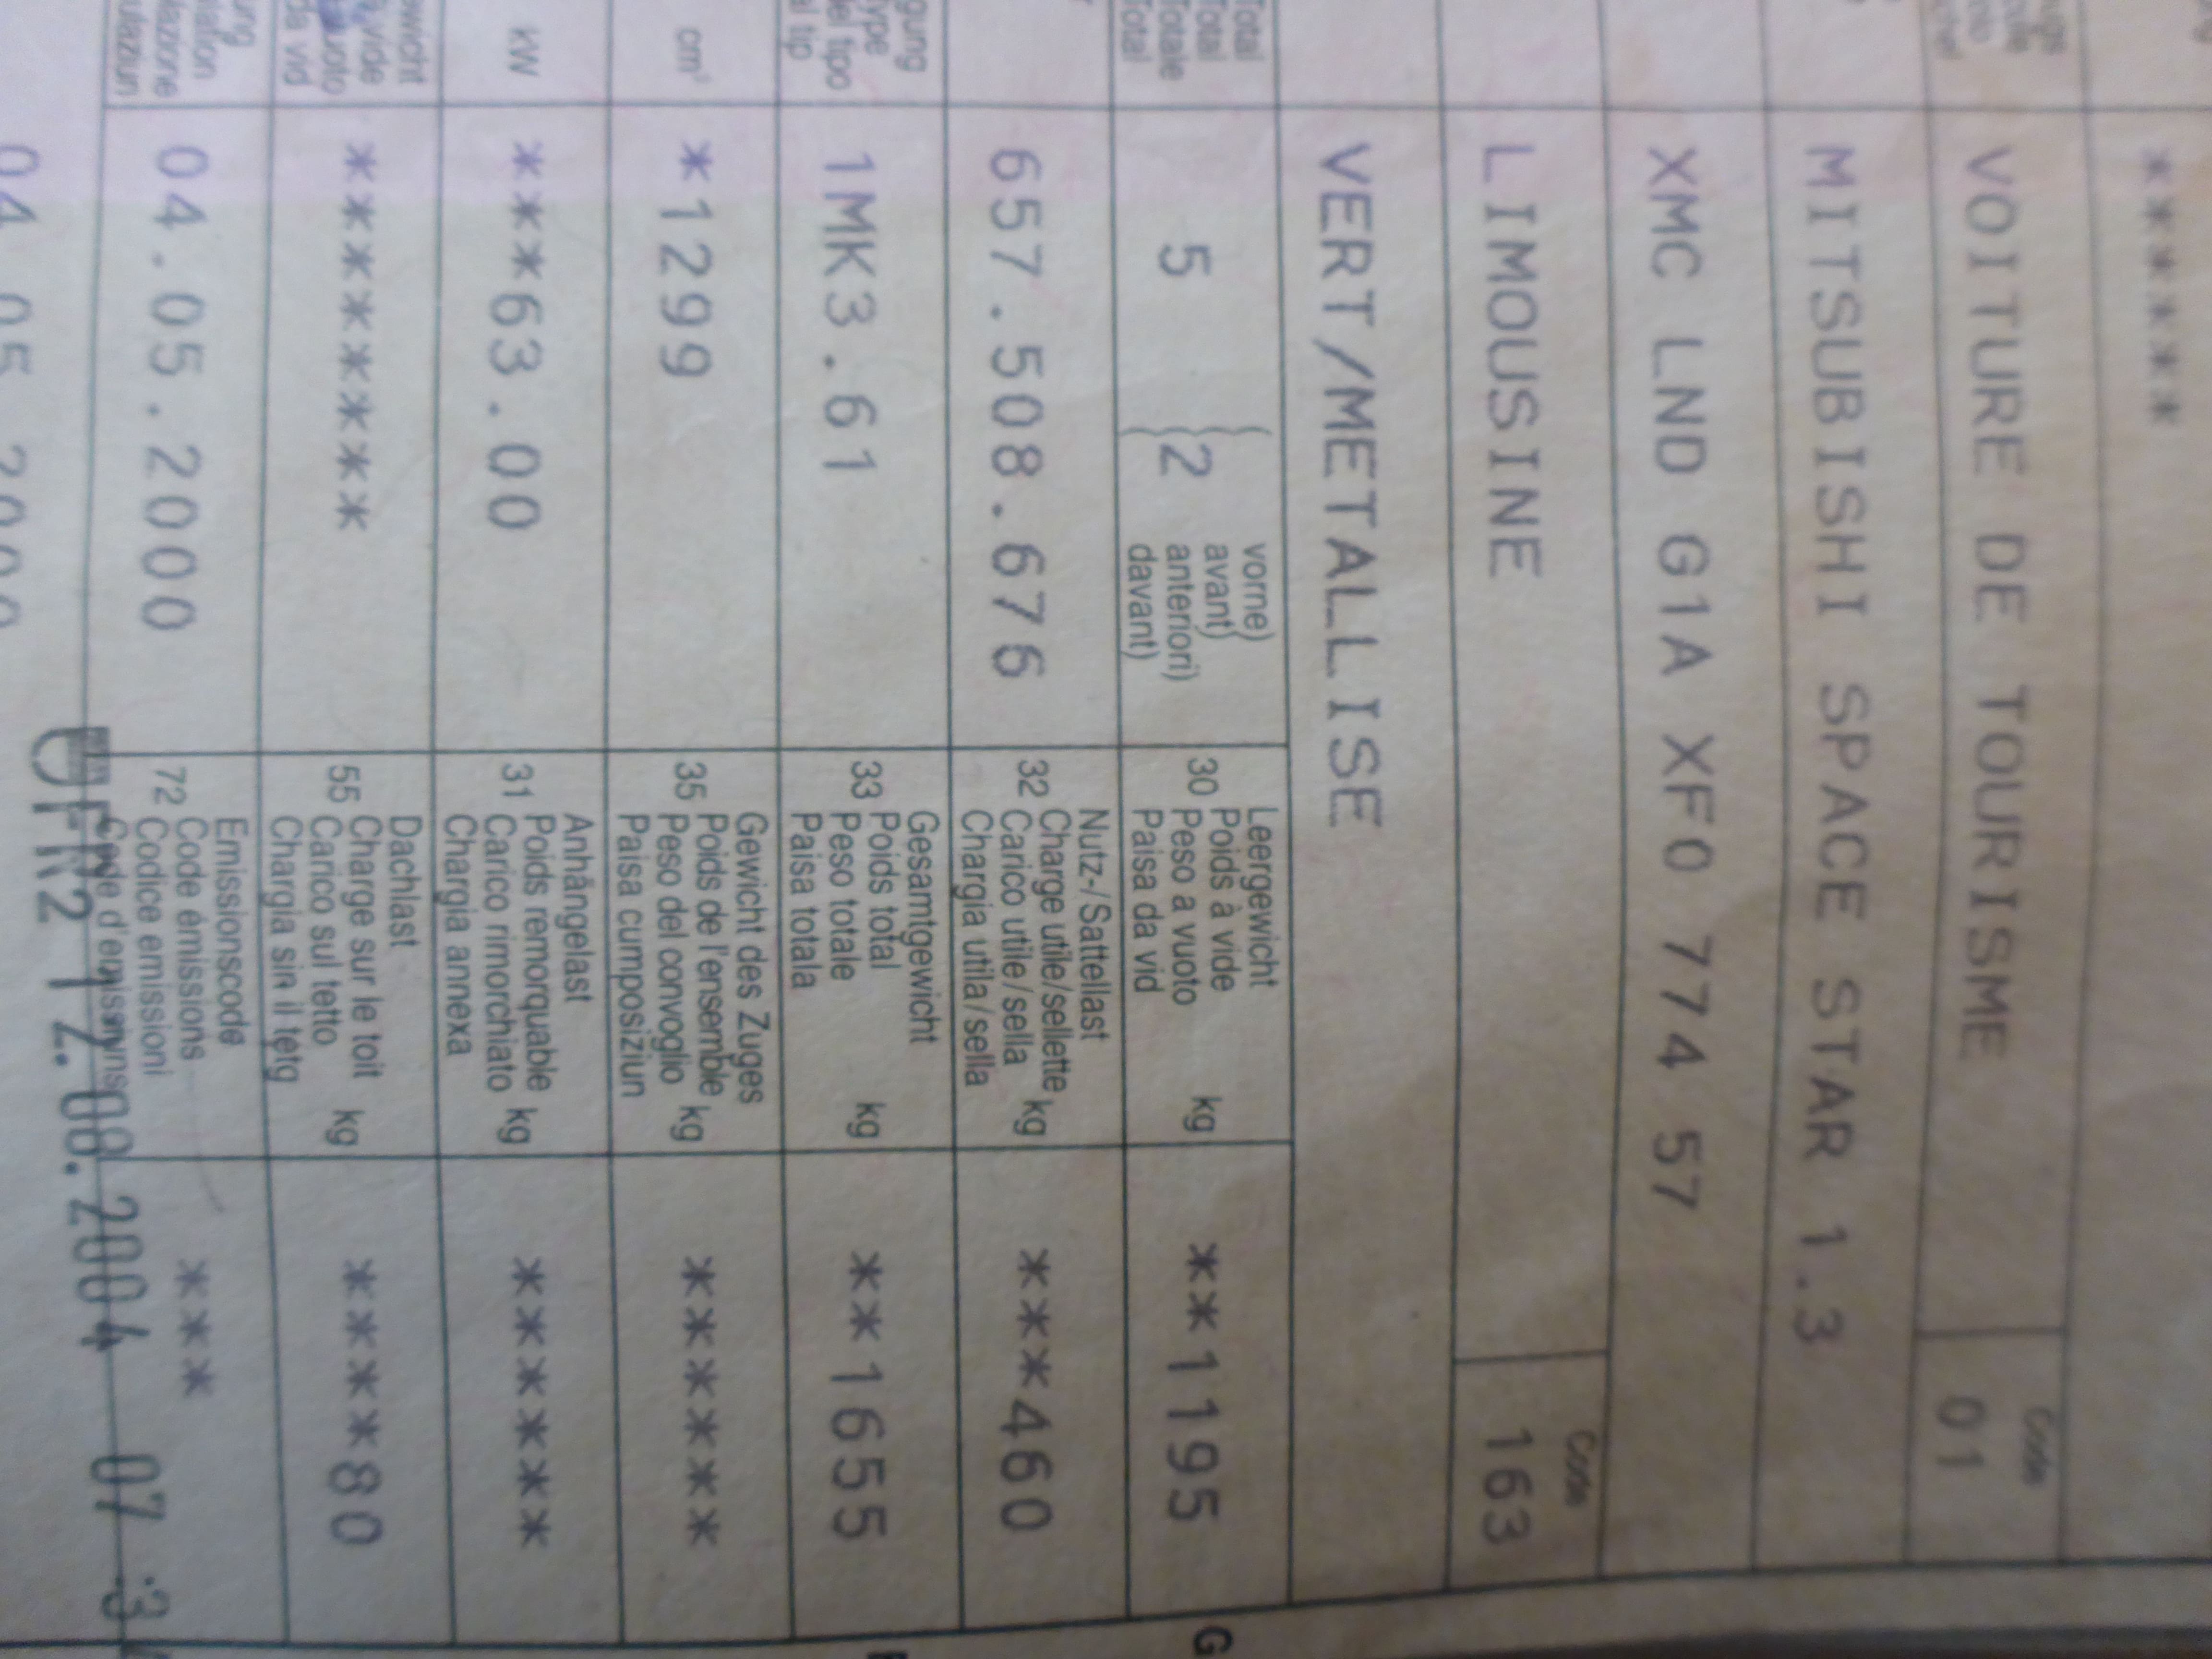 *******
VOITURE DE TOURISME
Code
01
MITSUBISHI SPACE STAR 1.3
XMC LND G1A XF0 774 57
LIMOUSINE
Code
163
VERT/METALLISE
Total
Total
Totale
Total
5
( 2
vorne)
avant)
anteriori)
davant)
Leergewicht
30 Poids à vide
Peso a vuoto
Paisa da vid
kg
**1195
657.508.676
Nutz-/Sattellast
32 Charge utile/sellette
Carico utile/sella
Chargia utila/sella
kg
***460
gung
type
el tipo
al tip
1MK3.61
Gesamtgewicht
33 Poids total
Peso totale
Paisa totala
kg
**1655
cm³
*1299
Gewicht des Zuges
35 Poids de l'ensemble
Peso del convoglio
Paisa cumposiziun
kg
******
kW
***63.00
Anhängelast
31 Poids remorquable
Carico rimorchiato
Chargia annexa
kg
******
ewicht
à vide
vuoto
da vid
********
Dachlast
55 Charge sur le toit
Carico sul tetto
Chargia sin il tetg
kg
****80
ung
lation
lazione
ulaziun
04.05.2000
Emissionscode
72 Code émissions
Codice emissioni
Code d'emissiuns
***
04.05.2000
12.08.2004 07
G